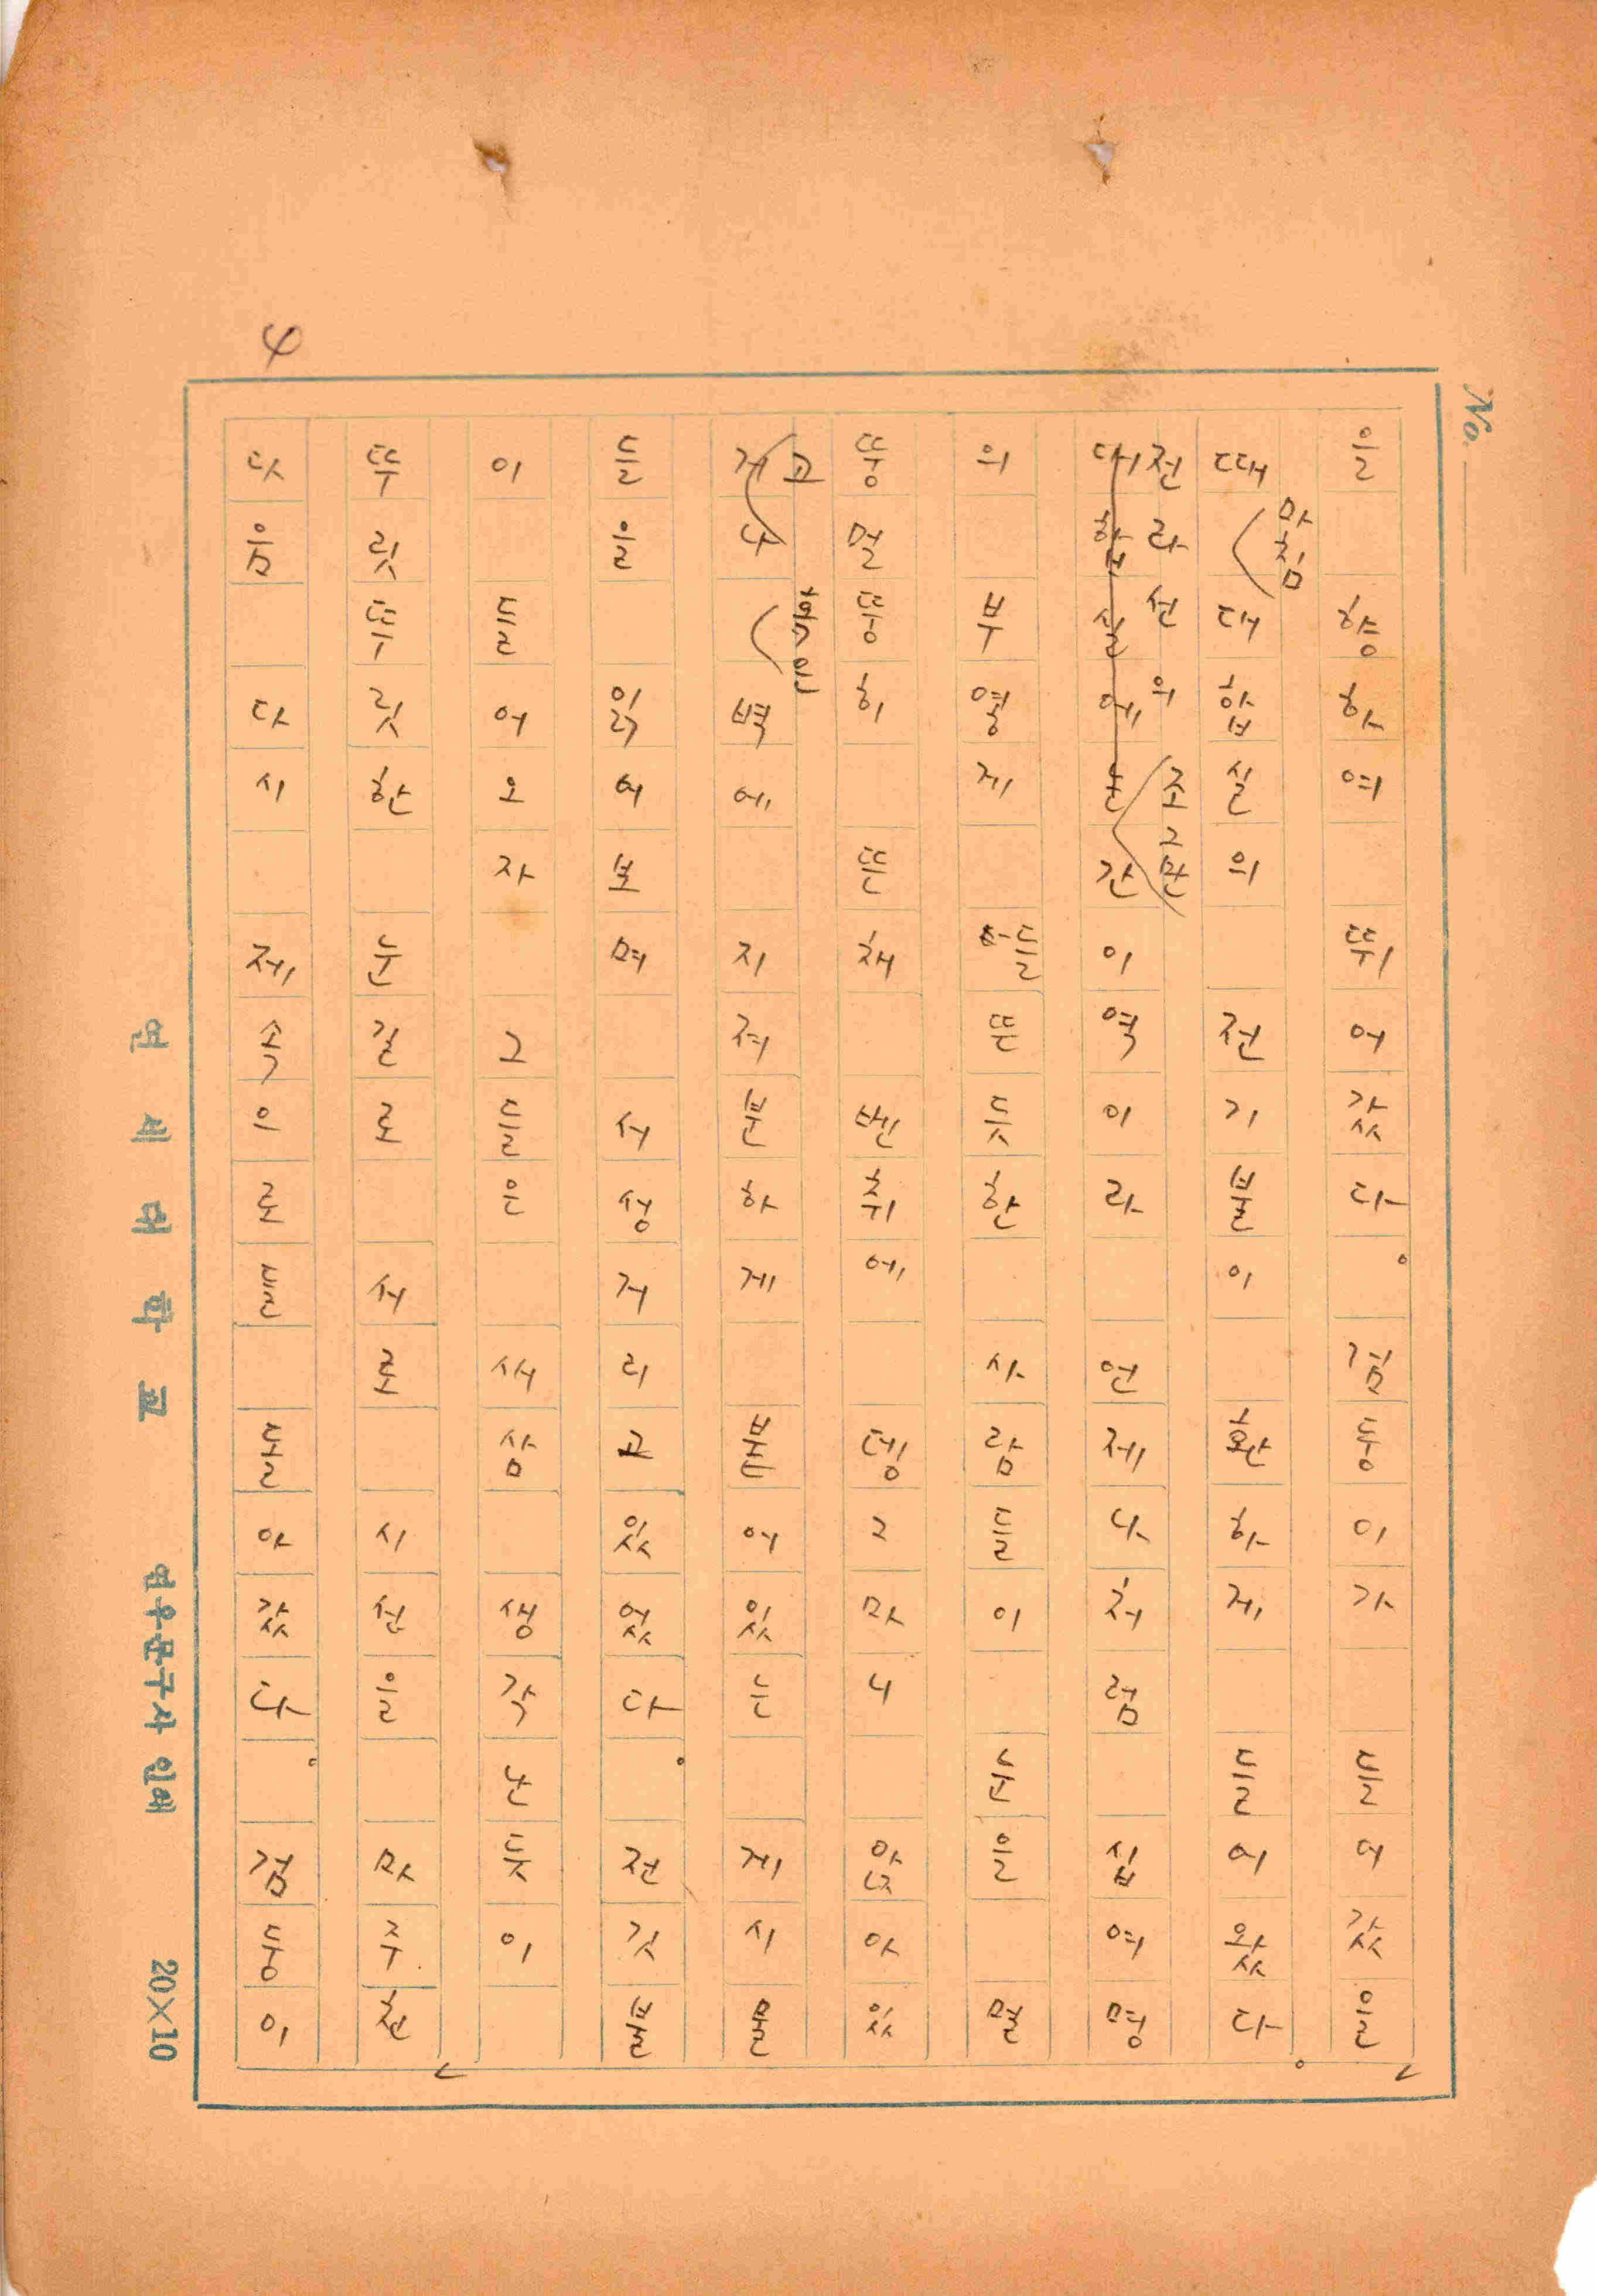 No.
을 향하여 뛰어갔다. 검둥이가 들어갔을
마침
때 대합실의 전기불이 환하게 들어왔다.
전라선의 조그만
대합실에는 간이역이라 언제나처럼 십여명
의 부옇게 들뜬듯한 사람들이 눈을 멀
뚱멀뚱히 뜬채 벤취에 뎅그마니 앉아있
고 혹은
거나 벽에 지저분하게 붙어있는 게시물
들을 읽어보며 서성거리고있었다. 전깃불
이 들어오자 그들은 새삼 생각난듯이
뚜릿뚜릿한 눈길로 서로 시선을 마주친
다음 다시 제속으로 돌아갔다. 검둥이
4
연세대학교 연우문구사 인쇄 20×10